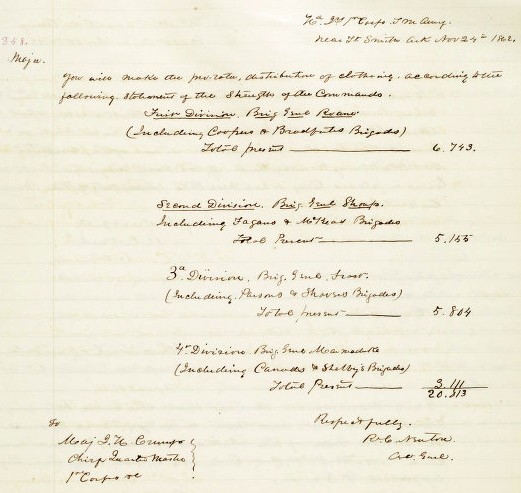 Hd Qrs 1st Corps T M Army.
Near Ft Smith Ark Nov 24th 1862.
258.
Major.
You will make the pro-rata, distribution of clothing. according to the
following. Statement of the Strengths of the Commands.
First Division. Brig Genl Roane
(Including Coopers & Bradfutes Brigades)
Total present 6.743.
Second Division. Brig. Genl Shoup.
Including Fagans & McRaes Brigades
Total Present 5.155
3d Division. Brig. Genl. Frost.
(Including. Parsons & Shavers Brigades)
Total present 5.804
4th Division. Brig Genl Marmaduke
(Including Carrolls & Shelby's Brigades)
Total Present 3.111
20.813
Respectfully.
To
Maj J. W Crump R. C. Newton.
Chief Quarter Master A. A. Genl.
1st Corps &c